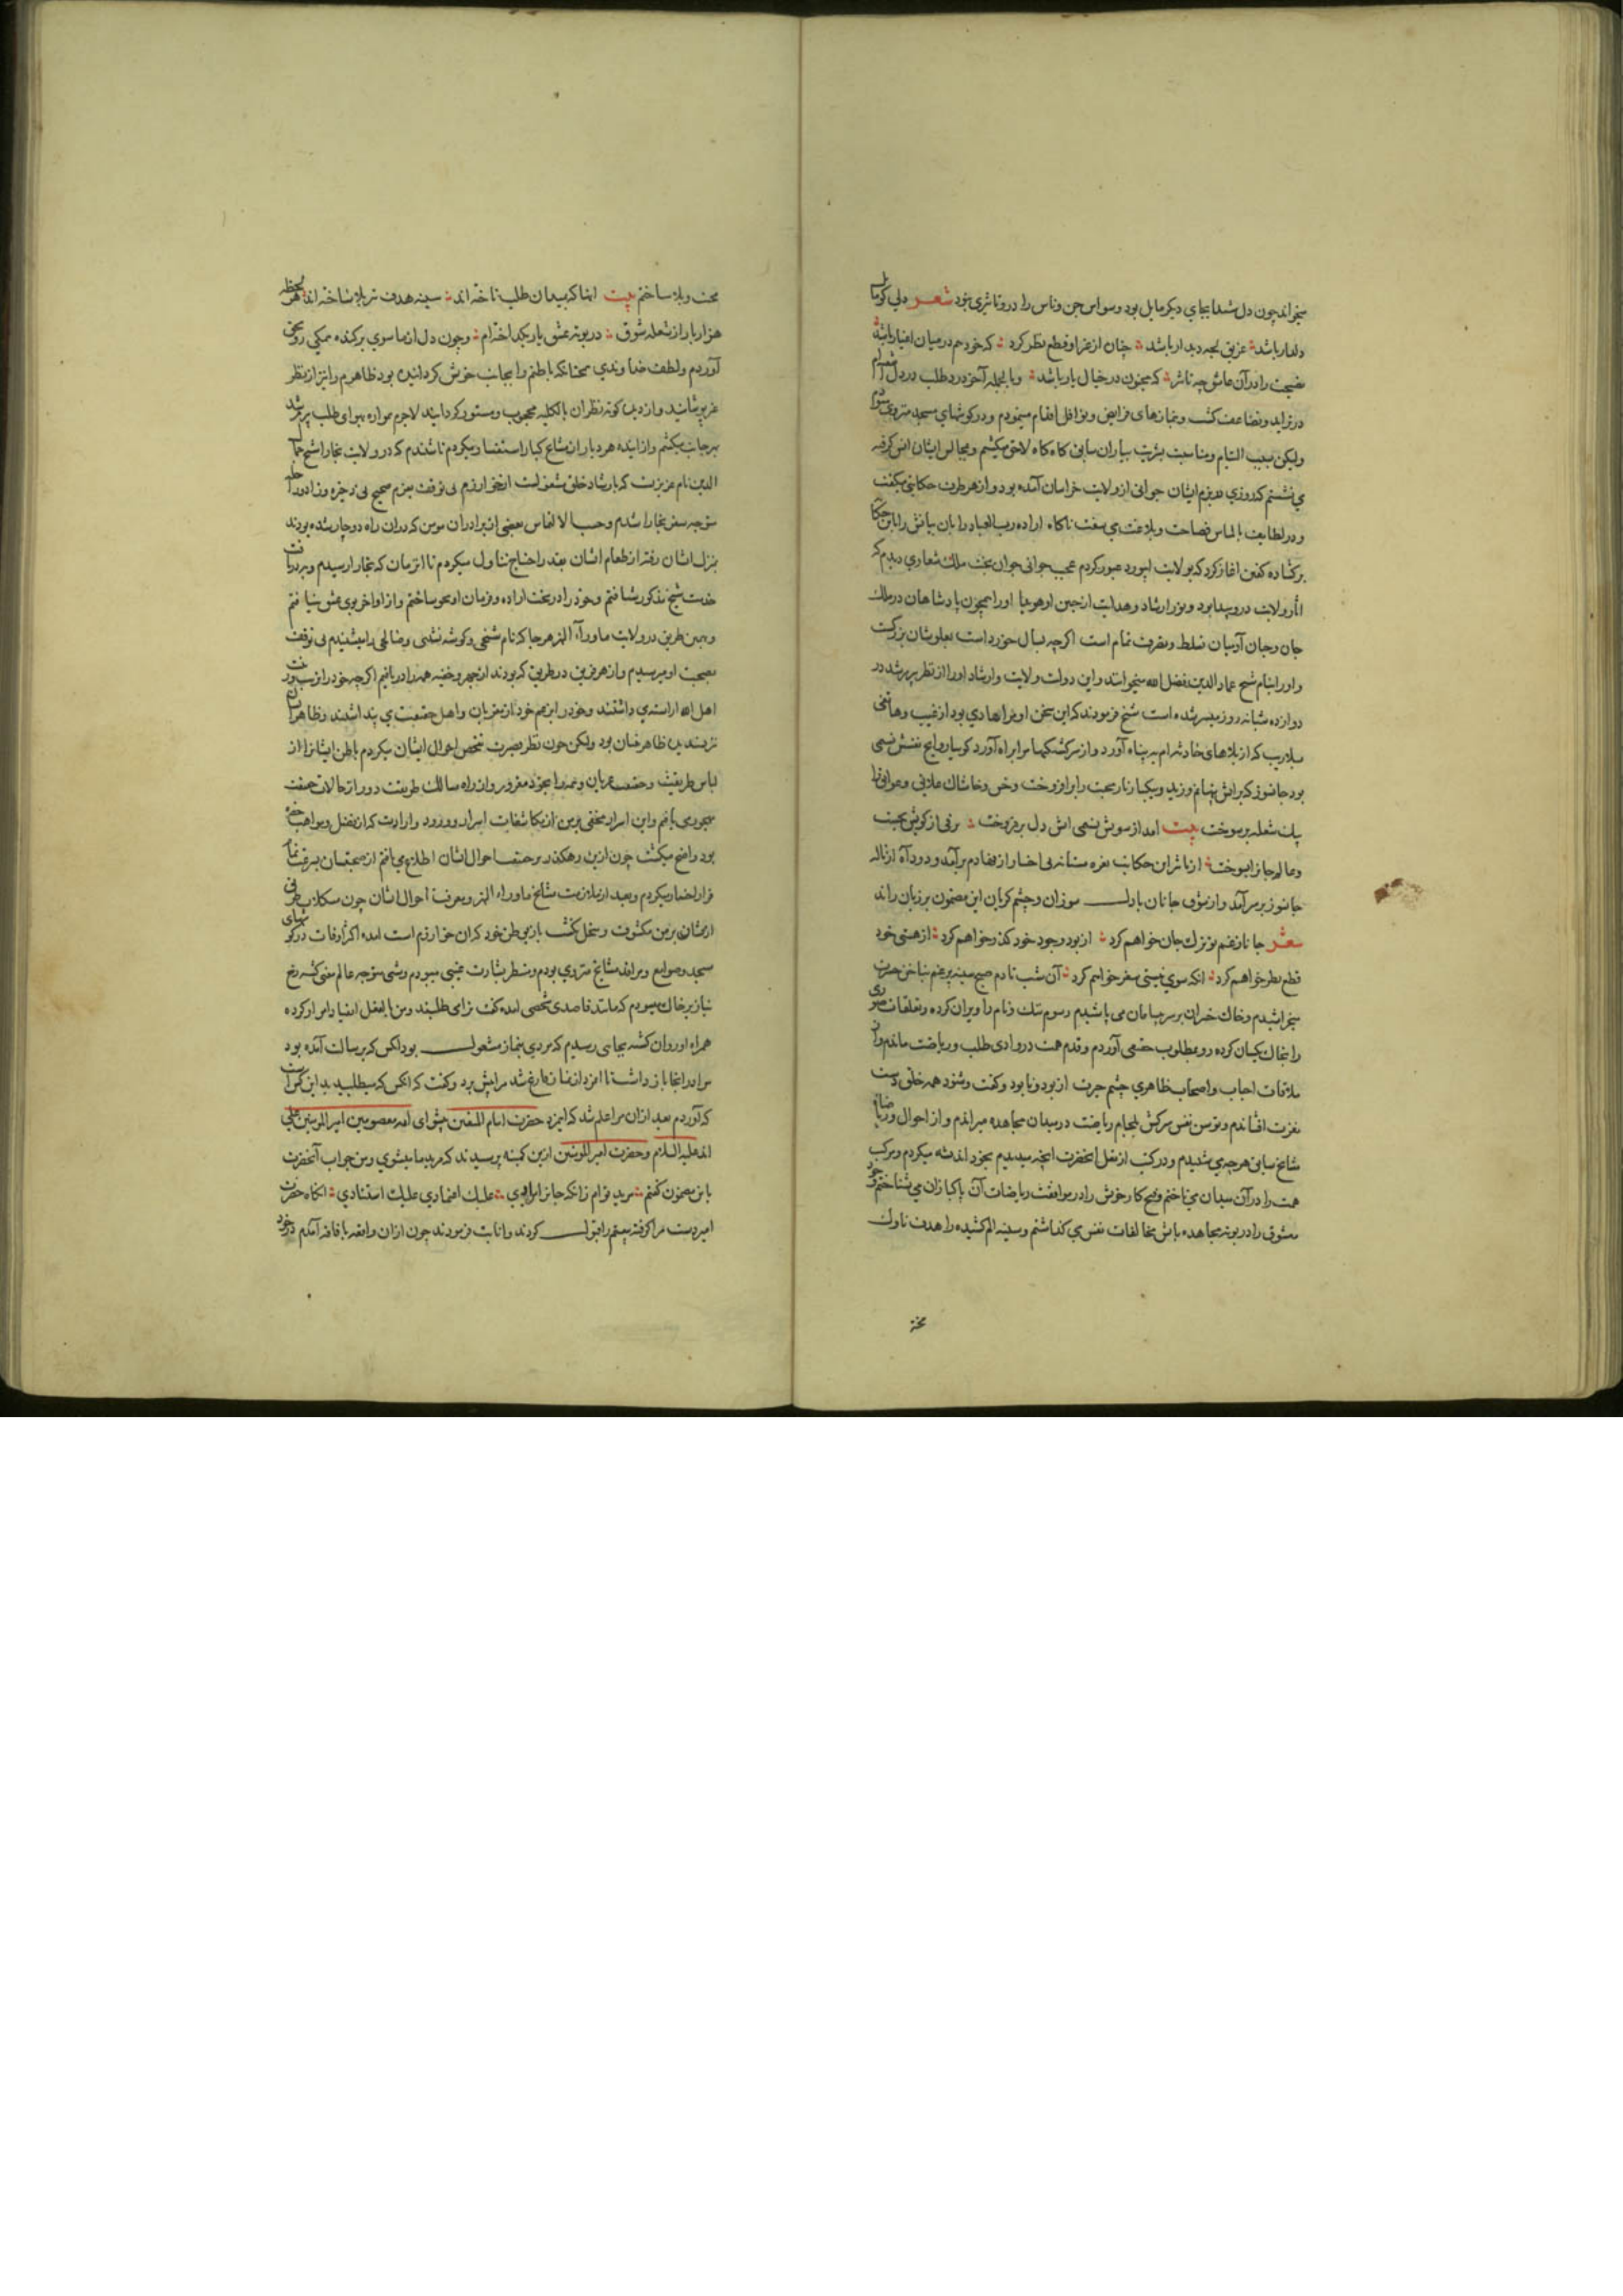 میخواند چون دل شیدا بجای دیگر مایل بود وسواس جن و ناس را درو تاثیری نبود شعر دلی کو مایل
دلدار باشد غریق لجه دیدار باشد چنان از غیر او قطع نظر کرد که خود هم در میان اغیار باشد
نصیحت را در آن عاشق چه تاثیر که مجنون در خیال یار باشد و بالجمله آخر درد طلب در دل
در تزاید و تضاعف گشت و بنمازهای فرایض و نوافل اقدام مینمودم و در کوشهای مسجد منزوی میشدم
ولیکن بسبب التیام و مناسبت بشریت بیاران سابق کاه کاه لاحق میکشتم و بمجالس ایشان انس کرفته
می نشستم که روزی در بزم ایشان جوانی از ولایت خراسان آمده بود و از هر طرف حکایتی میکفت
و در لطایف بالماس فصاحت و بلاغت می سفت ناکاه اراده رب العباد زبان بیانش را باین حکایت
برکشاده کفتن اغاز کرد که بولایت ابیورد عبور کردم عجب جوانی جوان بخت ملک شعاری دیدم که
اثار ولایت درو پیدا بود و نور ارشاد و هدایت از جبین او هویدا او را همچون پادشاهان در ملک
جان و جهان آدمیان تسلط و تصرف تمام است اگرچه بسال خورد است بعلو شان بزرکست
و او را بنام شیخ عماد الدین فضل الله میخوانند و این دولت ولایت و ارشاد او را از نظر پیر مرشد در
دوازده شبانه روز میسر شده است شیخ فرمودند که این سخن او مرا هادی بود از غیب و هاتفی
بلاریب که از بلاهای حادثه ام به پناه آورد و از سرکشتکیها مرا براه آورد کویا روایح نفسش نسیمی
بود جانسوز که براتش پنهانم وزید و یکبار نار محبت را برافروخت و خس و خاشاک علایق و عوایق را
بیک شعله برسوخت بیت امد از سویش نسیمی اتش دل برفروخت برقی از کویش بجست
و عالم جانرا بسوخت از تاثیر این حکایت نعره مستانه بی اختیار از نهادم برآمد و دود آه از ناله
جانسوز برسر آمد و از شوق جانان با دل سوزان و چشم کریان این مضمون بر زبان راند
شعر جانا ز غم تو ترک جان خواهم کرد از بود وجود خود گذر خواهم کرد از هستی خود
قطع نظر خواهم کرد انکه سوی نیستی سفر خواهم کرد آن شب تا دم صبح سینه پر غم بناخن حسرت
میخراشیدم و خاک خسران بر سر بسامان می پاشیدم رسوم ننک و نام را ویران کرده و تعلقات صوری
را بخاک یکسان کرده رو بمطلوب حقیقی آوردم و قدم همت در وادی طلب و ریاضت ماندم و از
ملاقات احباب و اصحاب ظاهری چشم حیرت از بود و نابود و کفت و شنود همه خلق دست
نفرت افشاندم و توسن نفس سرکش بلجام ریاضت در میدان مجاهده میراندم و از احوال و ریاضات
مشایخ سابق هر چه می شنیدم و در کتب از نقل انحضرت انچه میدیدم بخود اندیشه میکردم و مرکب
همت را در آن میدان می تاختم و هیچ کار خویش را در موافقت ریاضات آن پاکبازان می شناختم و خود
مشوق را در بوته مجاهده باتش مخالفات نفس می کداختم و سینه الم کشیده را هدف ناوک
محنت
محنت و بلا ساختم بیت انها که بمیدان طلب تاخته اند سینه هدف تیر بلا ساخته اند هر لحظه
هزار بار از شعله شوق در بوته عشق یار بکداخته ام و چون دل از ما سوی برکنده همکی رو بحق
آوردم و لطف خداوندی همچنانکه باطنم را بجانب خویش کردانیده بود ظاهرم را نیز از نظر
غیر پوشانید و از دیده کوته نظران بالکلیه محجوب و مستور کردانید لاجرم همواره بهوای طلب پیر مرشد
بهر جانب میکشتم و از اینده هر دیار از مشایخ کبار استفسار میکردم تا شنیدم که در ولایت بخارا شیخ جمال
الدین نام عزیزیست که بارشاد خلق مشغولست از خوارزم بی توقف بعزم صحیح بی ذخیره و زاد و راحله
متوجه سفر بخارا شدم و حسب الالتماس بعضی از برادران مومن که در ان راه دوچار شده بودند
بمنزل ایشان رفته از طعام ایشان بقدر احتیاج تناول میکردم تا انزمان که بخارا رسیدم و بدریافت
خدمت شیخ مذکور شتافتم و خود را در تحت اراده و فرمان او محو ساختم و از اواخر بوی عشق نیافتم
و بهمین طریق در ولایت ماوراء النهر هر جا که نام شیخی و کوشه نشینی و صالحی را میشنیدم بی توقف
بصحبت او میرسیدم و از هر فریق در طریق که بودند از جهر و خفیه همه را دریافتم اگرچه خود را بزینت
اهل الله اراسته می داشتند و خود را بزعم خود از مقربان و اهل حقیقت می پنداشتند و ظاهر ایشان
نزد بینندیه ظاهر چنان بود ولیکن چون نظر بصیرت تفحص احوال ایشان میکردم باطن ایشانرا از
لباس طریقت و حقیقت عریان و همه را بخود مغرور و از راه سالک طریقت دور از حالات حقیقت
مهجور می یافتم و این اسرار مخفی بر من از مکاشفات اسرار و ورود واردات که از فضل و مواهب حضرت
بود واضح میکشت چون از این رهکذر بر حقیقت احوال ایشان اطلاع می یافتم از صحبتشان بسرعت تمام
فرار اختیار میکردم و بعد از ملازمت مشایخ ماوراء النهر و معرفت احوال ایشان چون مشکلات طریق
ازیشان بر من مکشوف و منحل نکشت باز بوطن خود که ان خوارزم است امده اکثر اوقات در کوشهای
مسجد و صوامع و مراقد مشایخ منزوی بودم و منتظر بشارت غیبی میبودم و شبی متوجه عالم معنی کشته رخ
نیاز بر خاک میسودم که مانند قاصدی شخصی امده کفت ترا می طلبند و من بالفعل انقیاد امر او کرده
همراه او روان کشته بجایی رسیدم که مردی بنماز مشغول بود انکس که برسالت آمده بود
مرا در انجا باز داشت تا انمرد از نماز فارغ شد مرا پیش برد و کفت که انکس که میطلبیدید این کس است
که آوردم بعد ازان مرا اعلم شد که ایمرد حضرت امام المتقین پیشوای ائمه معصومین امیر المومنین علی
اند علیه السلام و حضرت امیر المومنین ازین کمینه پرسیدند که مرید ما میشوی و من جواب آنحضرت
باین مضمون کفتم مرید توام زانکه جانرا مرادی علیک اعتمادی علیک استنادی انکاه حضرت
امیر دست مرا کرفته بیعتم را قبول کردند و انابت فرمودند چون ازان واقعه بافاقه آمدم در خود